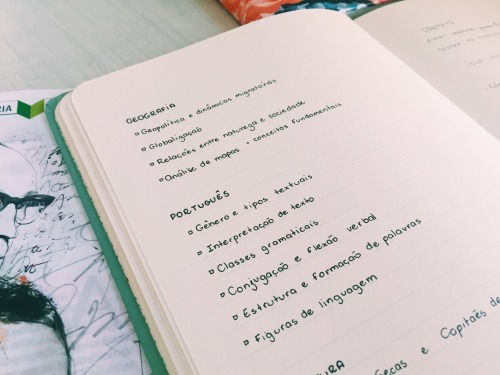 GEOGRAFIA
▫ Geopolítica e dinâmicas migratórias
▫ Globalização
▫ Relações entre natureza e sociedade
▫ Análise de mapas • conceitos fundamentais
PORTUGUÊS
▫ Gênero e tipos textuais
▫ Interpretação de texto
▫ Classes gramaticais
▫ Conjugação e flexão verbal
▫ Estrutura e formação de palavras
▫ Figuras de linguagem
e Capitães de